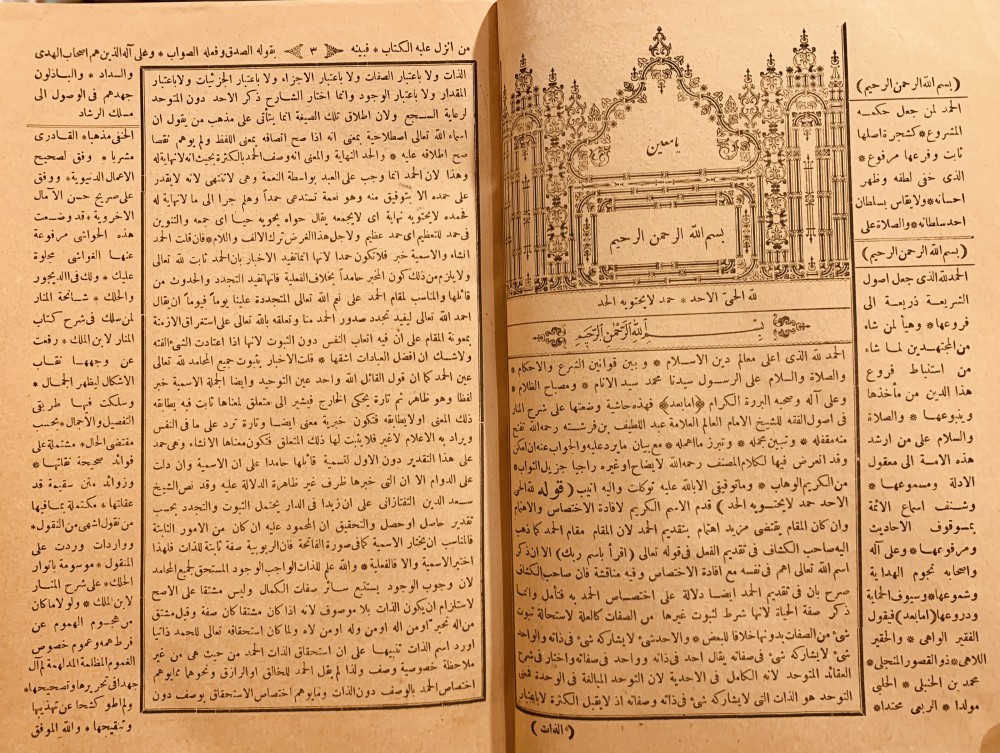 يا معين
بسم الله الرحمن الرحيم
لله الحىّ الاحد * حمد لا يحتويه الحد
بسم الله الرحمن الرحيم
الحمد لله الذى اعلى معالم دين الاسلام * و بين قوانين الشرع والاحكام *
والصلاة والسلام على الرسول سيدنا محمد سيد الانام * ومصباح الظلام *
وعلى آله وصحبه البررة الكرام (امابعد) فهذه حاشية وضعتها على شرح المنار
فى اصول الفقه للشيخ الامام العالم العلامة عبد اللطيف بن فرشته رحمه الله تفتح
منه مقفله * وتبين مجمله * وتبرز ما اهمله * مع بيان ما يرد عليه والجواب عنه ان امكن
وقد اتعرض فيها لكلام المصنف رحمه الله لايضاح اوغيره راجيا جزيل الثواب *
من الكريم الوهاب * وماتوفيقى الابالله عليه توكلت واليه انيب (قوله لله الحى
الاحد حمد لايحتويه الحد) قدم الاسم الكريم لافادة الاختصاص والاهتمام
وان كان المقام يقتضى مزيد اهتمام بتقديم الحمد لان المقام مقام الحمد كما ذهب
اليه صاحب الكشاف فى تقديم الفعل فى قوله تعالى (اقرأ باسم ربك) الا ان ذكر
اسم الله تعالى اهم فى نفسه مع افادة الاختصاص وفيه مناقشة فان صاحب الكشاف
صرح بان فى تقديم الحمد ايضا دلالة على اختصاص الحمد به فتأمل وانما
ذكر صفة الحياة لانها شرط لثبوت غيرها من الصفات كالعلة لاستحالة ثبوت
شئ من الصفات بدونها خلافا للبعض * والاحد شئ لايشاركه شئ فى ذاته والواحد
شئ لايشاركه شئ فى صفاته يقال احد فى ذاته وواحد فى صفاته واختار فى شرح
العقائد المتوحد لانه الكامل فى الاحدية لان التوحد المبالغة فى الوحدة فمعنى
التوحد هو الذات التى لايشاركه شئ فى ذاته وصفاته اذ لايقبل الكثرة لاباعتبار
(الذات)
(بسم الله الرحمن الرحيم)
الحمد لمن جعل حكمه
المشروع * كشجر ذاصلها
ثابت وفرعها مرفوع *
الذى خفى لطفه وظهر
احسانه * ولايقاس بسلطان
احد سلطانه * والصلاة على
(بسم الله الرحمن الرحيم)
الحمد لله الذى جعل اصول
الشريعة ذريعة الى
فروعها * وهيأ لمن شاء
من المجتهدين لما شاء
من استنباط فروع
هذا الدين من مأخذها
وينبوعها * والصلاة
والسلام على من ارشد
هذه الامة الى معقول
الادلة ومسموعها *
وشنف اسماع الائمة
بموقوف الاحاديث
ومرفوعها * وعلى آله
واصحابه نجوم الهداية
وشموعها * وسيوف الحماية
ودروعها (امابعد) فيقول
الفقير الواهى * والحقير
اللاهى * ذو القصور المنجلى *
محمد بن الحنبلى * الحلبى
مولدا * الربعى محتدا *
من انزل عليه الكتاب * فبينه ٣ بقوله الصدق وفعله الصواب * وعلى آله الذين هم اصحاب الهدى
والسداد * والباذلون
جهدهم فى الوصول الى
مسلك الرشاد
الحنفى مذهبا * القادرى
مشربا * وفق لصحيح
الاعمال الدنيوية * ووفق
على صريح حسن الآمال
الاخروية * قد وضعت
هذه الحواشى مرفوعة
عنها الغواشى مجلوة
عليك * ولك فى الديجور
والحلك * شائحة المنار
لمن سلك فى شرح كتاب
المنار لابن الملك * رفعت
عن وجهها نقاب
الاشكال ليظهر الجمال *
وسلكت فيها طريقى
التفصيل والاجمال * بحسب
مقتضى الحال * مشتملة على
فوائد صحيحة نقائتها *
وزوائد متن سقيمة قد
عقلتها * مكتملة بما فيها
من نقول اشهى من النقول *
وواردات وردت على
المنقول * موسومة بانوار
الحلك * على شرح المنار
لابن الملك * ولولا ما كان
من هجوم الهموم عن
فرط همه وعموم خصوص
الغموم المظلمة المدلهمة لم آل
جهدا فى تحريرها وتصحيحها *
ولم اطو كشحا عن تهذيبها
وتنقيحها * والله الموفق
الذات ولا باعتبار الصفات ولا باعتبار الاجزاء ولا باعتبار الجزئيات ولا باعتبار
المقدار ولا باعتبار الوجود وانما اختار الشارح ذكر الاحد دون المتوحد
لرعاية السجع ولان اطلاق تلك الصيغة انما يتأتى على مذهب من يقول ان
اسماء الله تعالى اصطلاحية بمعنى انه اذا صح اتصافه بمعنى اللفظ ولم يوهم نقصا
صح اطلاقه عليه * والحد النهاية والمعنى انه وصف الحمد بالكثرة بحيث انه لانهاية له
وهذا لان الحمد انما وجب على العبد بواسطة النعمة وهى لاتنتهى لانه لايقدر
على حمده الا بتوفيق منه وهو نعمة تستدعى حمداً وهلم جرا الى ما لانهاية له
فحمده لايحتويه نهاية اى لايجمعه يقال حواه يحويه حيا اى جمعه والتنوين
فى حمد للتعظيم اى حمد عظيم ولاجل هذا الغرض ترك الالف واللام * فان قلت الحمد
انشاء والاسمية خبر فلا تكون حمدا لانها انما تفيد الاخبار بان الحمد ثابت لله تعالى
ولا يلزم من ذلك كون المخبر حامداً بخلاف الفعلية فانها تفيد التجدد والحدوث من
قائلها والمناسب لمقام الحمد على نعم الله تعالى المتجددة علينا يوماً فيوماً ان يقال
احمد الله تعالى ليفيد تجدد صدور الحمد منا وتعلقه بالله تعالى على استغراق الازمنة
بمعونة المقام على ان فيه اتعاب النفس دون الثبوت لانها اذا اعتادت الشئ الفته
ولاشك ان افضل العبادات اشقها * قلت الاخبار بثبوت جميع المحامد لله تعالى
عين الحمد كما ان قول القائل الله واحد عين التوحيد وايضا الجملة الاسمية خبر
لفظا وهو ظاهر ثم تارة يحكى الخارج فيشير الى متعلق لمعناها ثابت فيه يطابقه
ذلك المعنى اولايطابقه فتكون خبرية معنى ايضا وتارة ترد على ما فى النفس
ويراد به الاعلام لاغير فلايثبت لها ذلك المتعلق فتكون معناها الانشاء وهى حمد
على هذا التقدير دون الاول لتسمية قائلها حامدا على ان الاسمية وان دلت
على الدوام الا ان التى خبرها ظرف غير ظاهرة الدلالة عليه وقد نص الشيخ
سعد الدين التفتازانى على ان زيدا فى الدار يحتمل الثبوت والتجدد بحسب
تقدير حاصل اوحصل والتحقيق ان المحمود عليه ان كان من الامور الثابتة
فالمناسب ان يختار الاسمية كما فى صورة الفاتحة فان الربوبية صفة ثابتة للذات فلهذا
اختير الاسمية والا فالفعلية * والله علم للذات الواجب الوجود المستحق لجميع المحامد
لان وجوب الوجود يستتبع سائر صفات الكمال وليس مشتقا على الاصح
لاستلزام ان يكون الذات بلا موصوف لانه اذا كان مشتقا كان صفة وقيل مشتق
من اله تحير اومن اله اومن وله اومن لاه ولما كان استحقاقه تعالى للحمد ذاتيا
اورد اسم الذات تنبيها على ان استحقاق الذات الحمد من حيث هى من غير
ملاحظة خصوصية وصف ولذا لم يقل الحمد للخالق او الرازق ونحوها مما يوهم
اختصاص الحمد بالوصف دون الذات وما يوهم اختصاص الاستحقاق بوصف دون